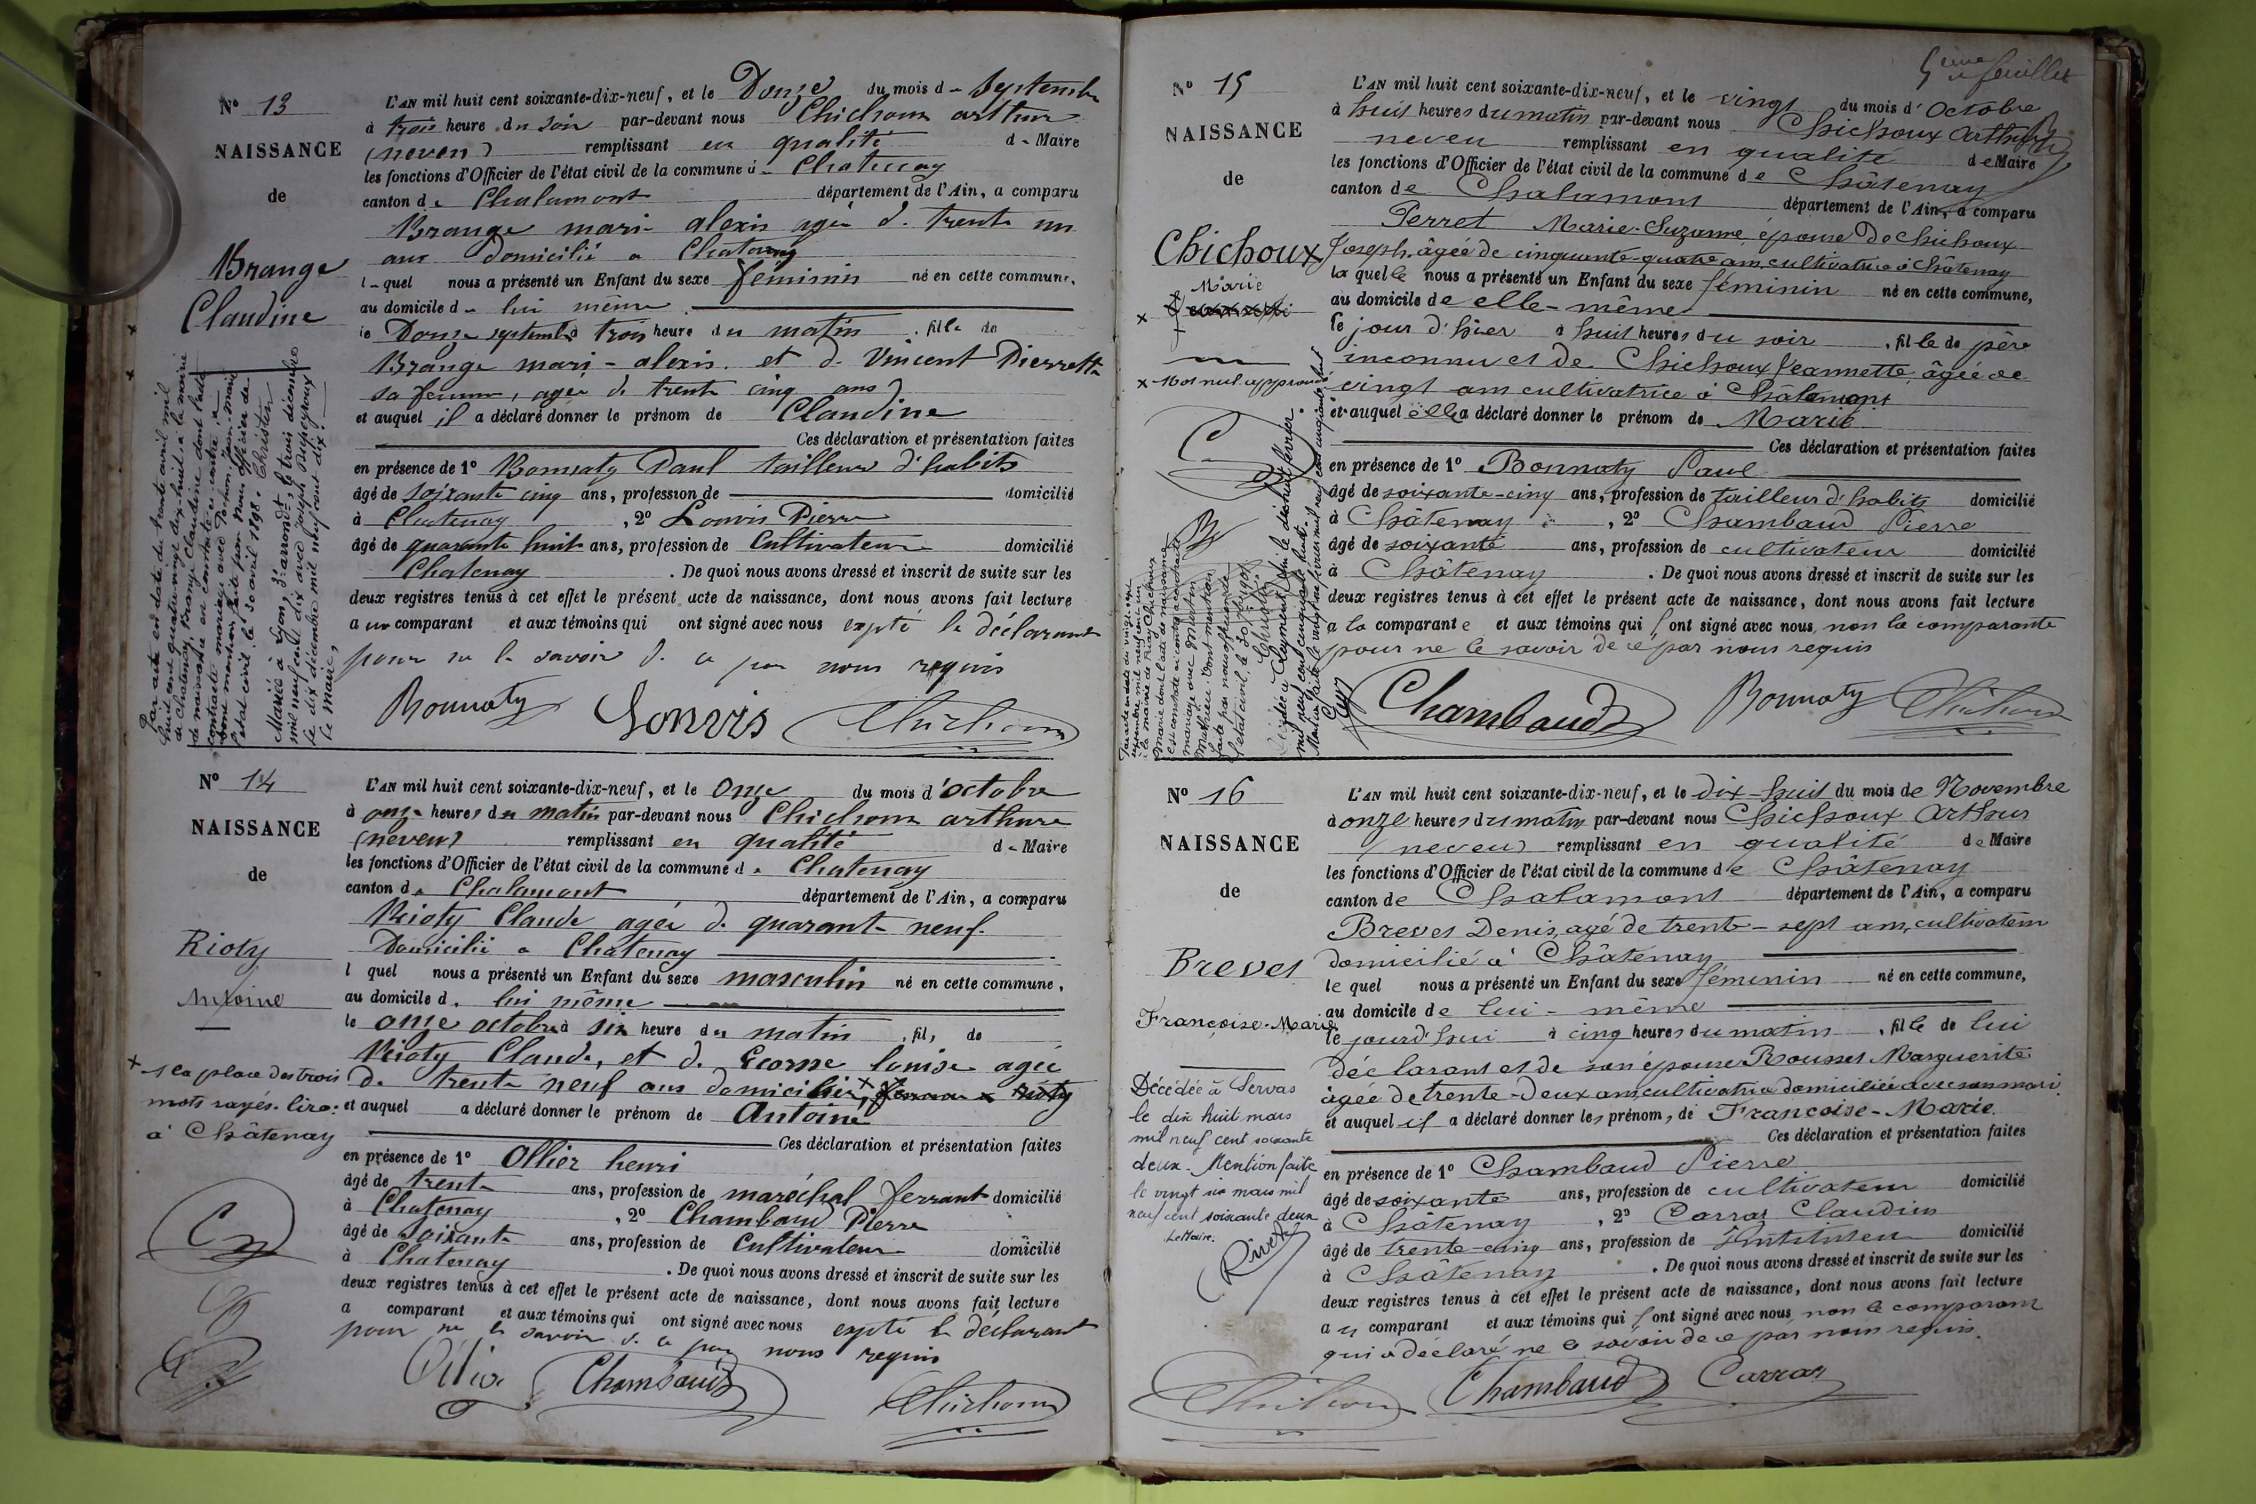 N° 13
NAISSANCE
de
Brange
Claudine
L'AN mil huit cent soixante-dix-neuf, et le Douze du mois de Septembre
à trois heure du soir par-devant nous Chichoux arthur
(neveu) remplissant en qualité de Maire
les fonctions d'Officier de l'état civil de la commune d Chatenay
canton de Chalamont département de l'Ain, a comparu
Brange mari-alexis agée de trente un
ans Domicilié a Chatenay
l quel nous a présenté un Enfant du sexe féminin né en cette commune,
au domicile de lui même
le Douze septembre à trois heure du matin , fille de
Brange mari-alexis et de Vincent Pierrette
sa femme, agée de trente cinq ans
et auquel il a déclaré donner le prénom de Claudine
Ces déclaration et présentation faites
en présence de 1° Bonnaty Paul tailleur d'habits
âgé de soixante cinq ans, profession de domicilié
à Chatenay , 2° Louvis Pierre
âgé de quarante huit ans, profession de Cultivateur domicilié
Chatenay . De quoi nous avons dressé et inscrit de suite sur les
deux registres tenus à cet effet le présent acte de naissance, dont nous avons fait lecture
a un comparant et aux témoins qui ont signé avec nous expté le déclarant
pour ne le savoir de ce par nous requis
Bonnaty Louvis Chichoux
Par acte en date du trente avril mil
huit cent quatre-vingt dix-huit à la mairie
de Chatenay, Brange Claudine dont l'acte
de naissance est constaté ci-contre, a
contracté mariage avec
dont mention faite par Nous officier de
l'état civil, le 30 avril 1898.
Mariée à Lyon, 3e arrondt, le trois décembre
mil neuf cent dix avec Joseph Dupeyroux
le dix décembre mil neuf cent dix.
Le Maire,
N° 14
NAISSANCE
de
Rioty
Antoine
L'AN mil huit cent soixante-dix-neuf, et le onze du mois d'octobre
à onze heures du matin par-devant nous Chichoux arthure
(neveu) remplissant en qualité de Maire
les fonctions d'Officier de l'état civil de la commune de Chatenay
canton de Chalamont département de l'Ain, a comparu
Rioty Claude agée de quarante neuf
Domicilié a Chatenay
l quel nous a présenté un Enfant du sexe masculin né en cette commune,
au domicile de lui même
le onze octobre à six heure du matin , fils de
Rioty Claude, et de Ecorne louise agée
de trente neuf ans domiciliée
et auquel a déclaré donner le prénom de Antoine
Ces déclaration et présentation faites
en présence de 1° Ollier henri
âgé de trente ans, profession de maréchal ferrant domicilié
à Chatenay , 2° Chambaud Pierre
âgé de soixante ans, profession de Cultivateur domicilié
à Chatenay . De quoi nous avons dressé et inscrit de suite sur les
deux registres tenus à cet effet le présent acte de naissance, dont nous avons fait lecture
a comparant et aux témoins qui ont signé avec nous expté le déclarant
pour ne le savoir de ce par nous requis
Chambaud Chichoux
x à la place des trois
mots rayés. lire:
à Châtenay
5ème feuillet
N° 15
NAISSANCE
de
Chichoux
Marie
x Mot nul approuvé
L'AN mil huit cent soixante-dix-neuf, et le vingt du mois d'Octobre
à huit heures du matin par-devant nous Chichoux Arthur
neveu remplissant en qualité de Maire
les fonctions d'Officier de l'état civil de la commune de Châtenay
canton de Chalamont département de l'Ain, a comparu
Perret Marie-Suzanne, épouse de Chichoux
Joseph, âgée de cinquante-quatre ans, cultivatrice à Châtenay
la quelle nous a présenté un Enfant du sexe féminin né en cette commune,
au domicile de elle-même
le jour d'hier à huit heures du soir , fille de père
inconnu et de Chichoux Jeannette, âgée de
vingt ans cultivatrice à Châtenay
et auquel elle a déclaré donner le prénom de Marie
Ces déclaration et présentation faites
en présence de 1° Bonnaty Paul
âgé de soixante-cinq ans, profession de tailleur d'habits domicilié
à Châtenay , 2° Chambaud Pierre
âgé de soixante ans, profession de cultivateur domicilié
à Châtenay . De quoi nous avons dressé et inscrit de suite sur les
deux registres tenus à cet effet le présent acte de naissance, dont nous avons fait lecture
a la comparante et aux témoins qui ont signé avec nous, non la comparante
pour ne le savoir de ce par nous requis
Chambaud Bonnaty Chichoux
N° 16
NAISSANCE
de
Brevet
Françoise-Marie
L'AN mil huit cent soixante-dix-neuf, et le dix-huit du mois de Novembre
à onze heures du matin par-devant nous Chichoux Arthur
(neveu) remplissant en qualité de Maire
les fonctions d'Officier de l'état civil de la commune de Châtenay
canton de Chalamont département de l'Ain, a comparu
Brevet Denis, agé de trente-sept ans, cultivateur
domicilié à Châtenay
le quel nous a présenté un Enfant du sexe féminin né en cette commune,
au domicile de lui-même
le jourd'hui à cinq heures du matin , fille de lui
déclarant et de son épouse Rousset Marguerite
agée de trente-deux ans, cultivatrice domiciliée avec son mari
et auquel il a déclaré donner les prénom, de Françoise-Marie.
Ces déclaration et présentation faites
en présence de 1° Chambaud Pierre
âgé de soixante ans, profession de cultivateur domicilié
à Châtenay , 2° Carras Claudius
âgé de trente-cinq ans, profession de Instituteur domicilié
à Châtenay . De quoi nous avons dressé et inscrit de suite sur les
deux registres tenus à cet effet le présent acte de naissance, dont nous avons fait lecture
a u comparant et aux témoins qui ont signé avec nous non le comparant
qui a déclaré ne le savoir de ce par nous requis.
Chichoux Chambaud Carras
Décédée à Servas
le dix huit mars
mil neuf cent soixante
deux. Mention faite
le vingt six mars mil
neuf cent soixante deux
Le Maire.